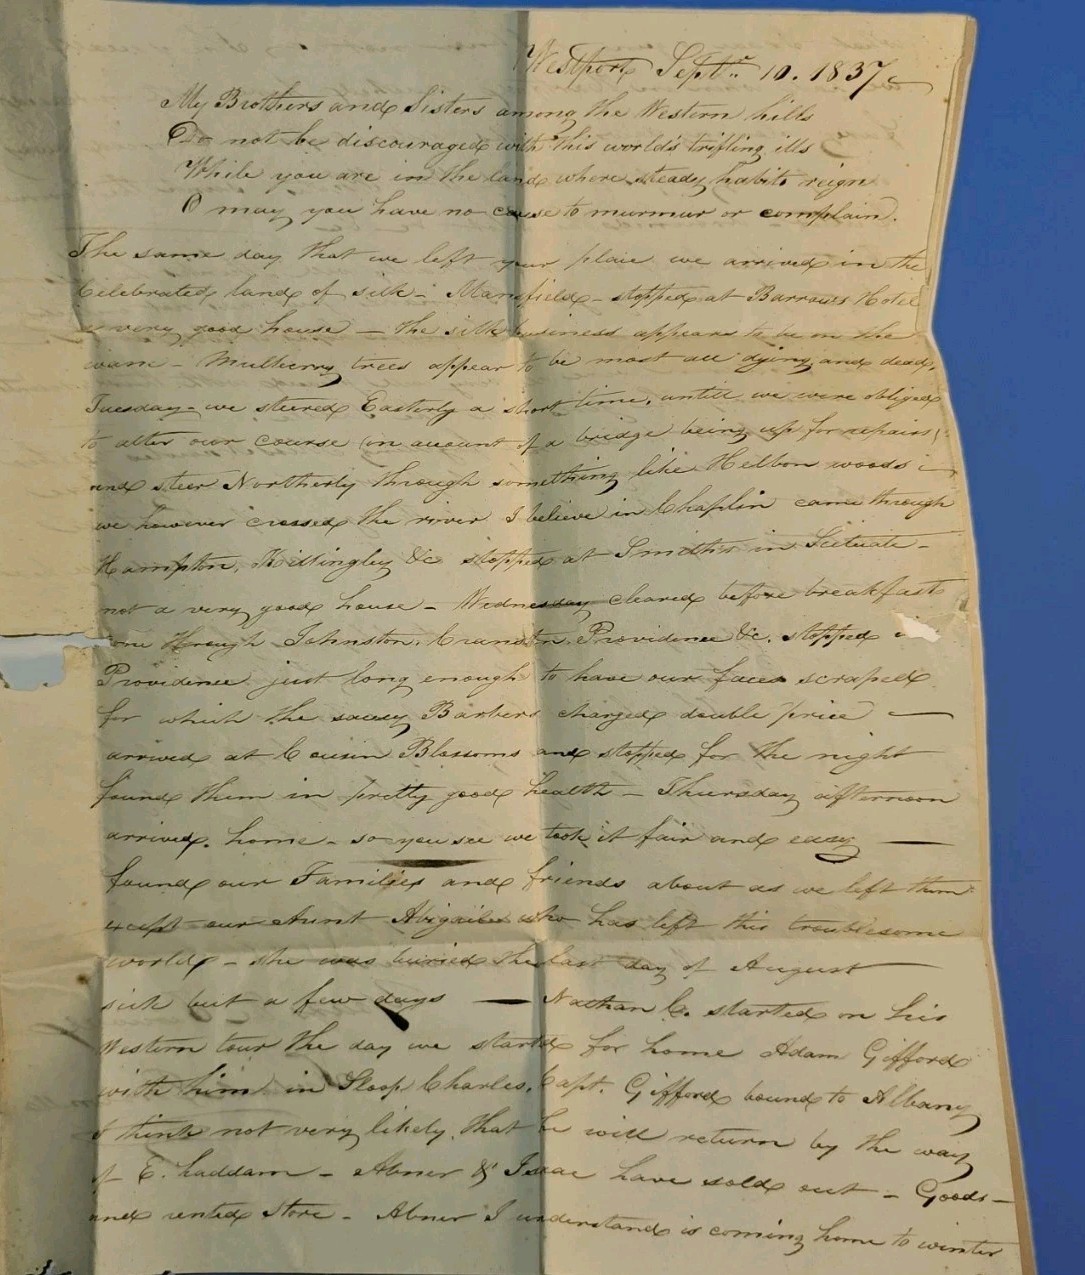 Westport Septr. 10. 1837.
My Brothers and Sisters among the Western hills
Do not be discouraged with this world's trifling ills
While you are in the land where steady habits reign
O may you have no cause to murmur or complain.
The same day that we left your place we arrived in the
Celebrated land of silk - Mansfield - stopped at Barrows Hotel
a very good house - the silk business appears to be on the
wane - Mulberry trees appear to be most all dying and dead,
Tuesday - we steered Easterly a short time, untill we were obliged
to alter our course (on account of a bridge being up for repairs)
and steer Northerly through something like Helton woods -
we however crossed the river I believe in Chaplin came through
Hampton, Killingley &c stopped at Smiths in Scituate -
not a very good house - Wednesday cleared before breakfast
come through Johnston, Cranston, Providence &c. stopped
Providence just long enough to have our faces scraped
for which the saucy Barbers charged double price -
arrived at Cousin Blossoms and stopped for the night
found them in pretty good health - Thursday afternoon
arrived home - so you see we took it fair and easy -
found our Families and friends about as we left them
except our Aunt Abigail who has left this troublesome
world - she was buried the last day of August -
sick but a few days - Nathan C. started on his
Western tour the day we started for home Adam Gifford
with him in Sloop Charles, Capt. Gifford bound to Albany
I think not very likely that he will return by the way
of E. haddam - Abner & Isaac have sold out - Goods -
and rented Store - Abner I understand is coming home to winter